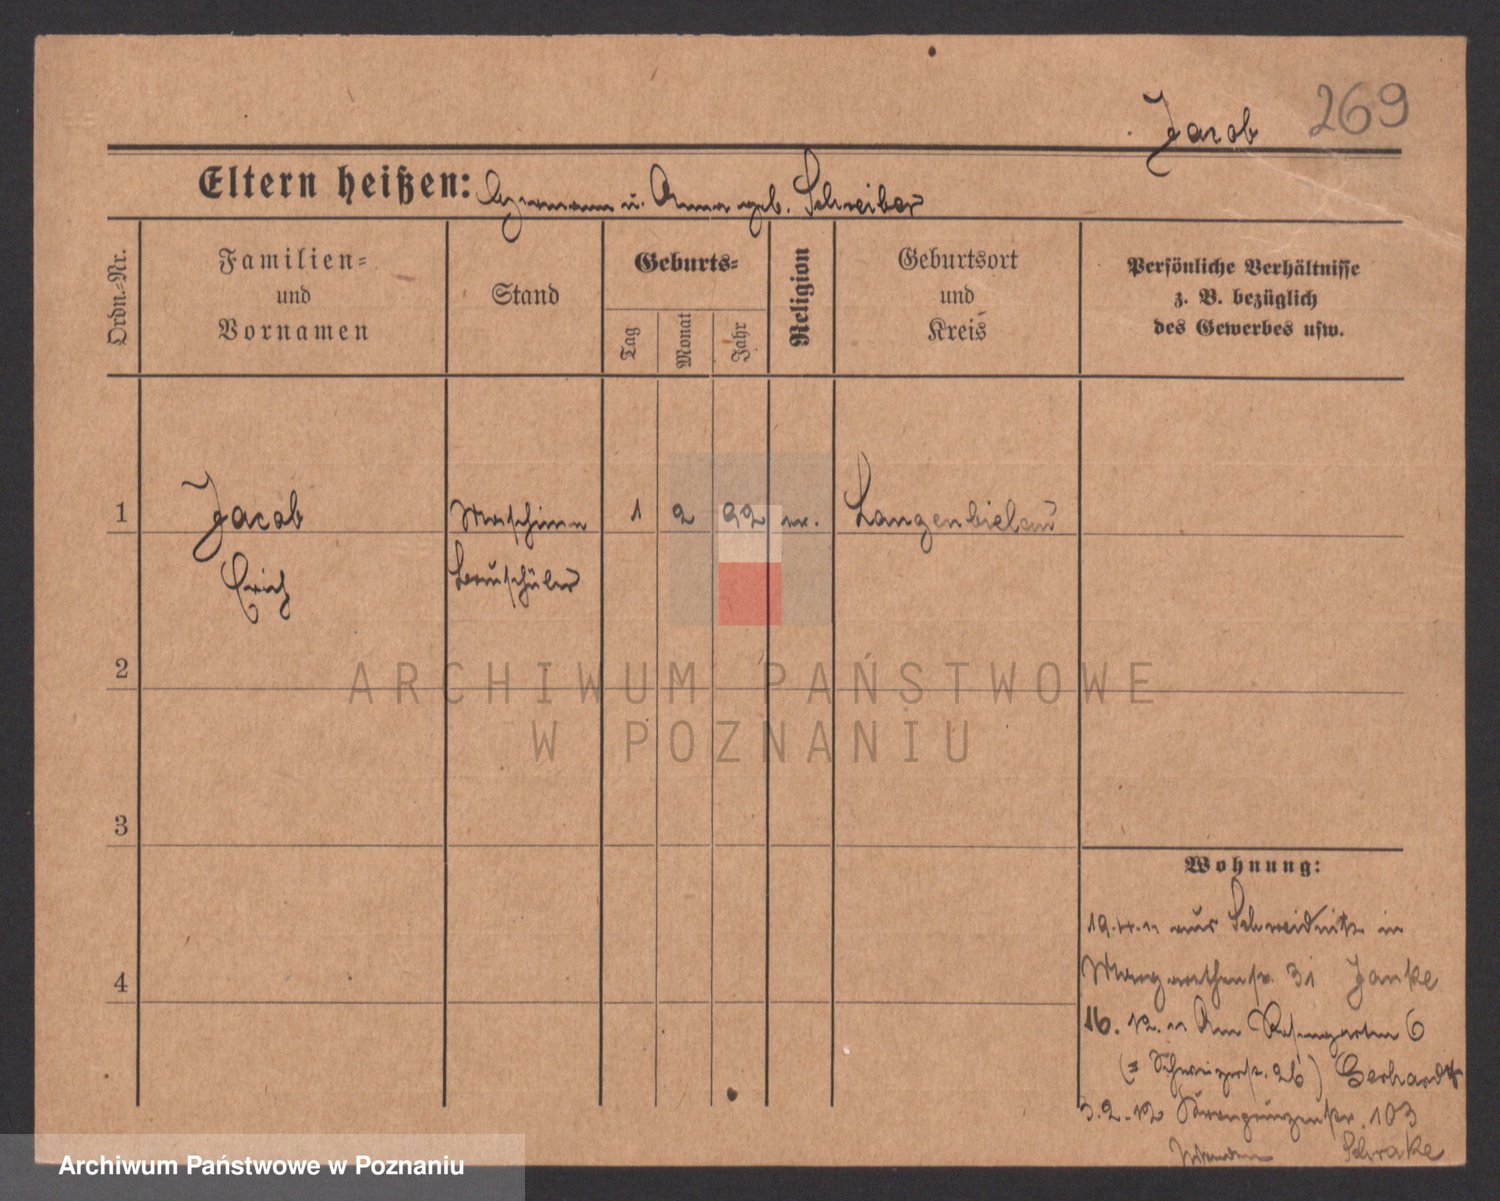 Jacob 269
Eltern heißen: Hermann u. Anna geb. Schreiber
Ordn.-Nr.
Familien- und Vornamen
Stand
Geburts-
Tag
Monat
Jahr
Religion
Geburtsort und Kreis
Persönliche Verhältnisse
z. B. bezüglich
des Gewerbes usw.
1 Jacob Maschinen 1 2 92 Langenbielau
Erich bauschüler
2
3
4
Wohnung:
19.4.11 aus Schweidnitz in
Margarethenstr. 31 Janke
16.12.11 Am Rosengarten 6
(= Schweizerstr. 26) Gerhardt
3.2.12 103
Schrake
ARCHIWUM PAŃSTWOWE
W POZNANIU
Archiwum Państwowe w Poznaniu